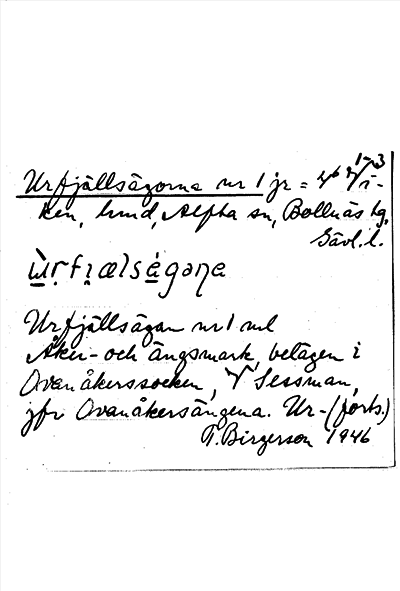 1-3
Urfjällsägorna nr 1 jr = Vi-
ken, hmd, Alfta sn, Bollnäs tg,
Gävl.l.
ùrfɪælsägəɳe
Urfjällsägan nr 1 ml
Åker- och ängsmark, belägen i
Ovanåkerssocken, V Sessman,
jfr Ovanåkersängena. Ur- (forts.)
T. Birgerson 1946